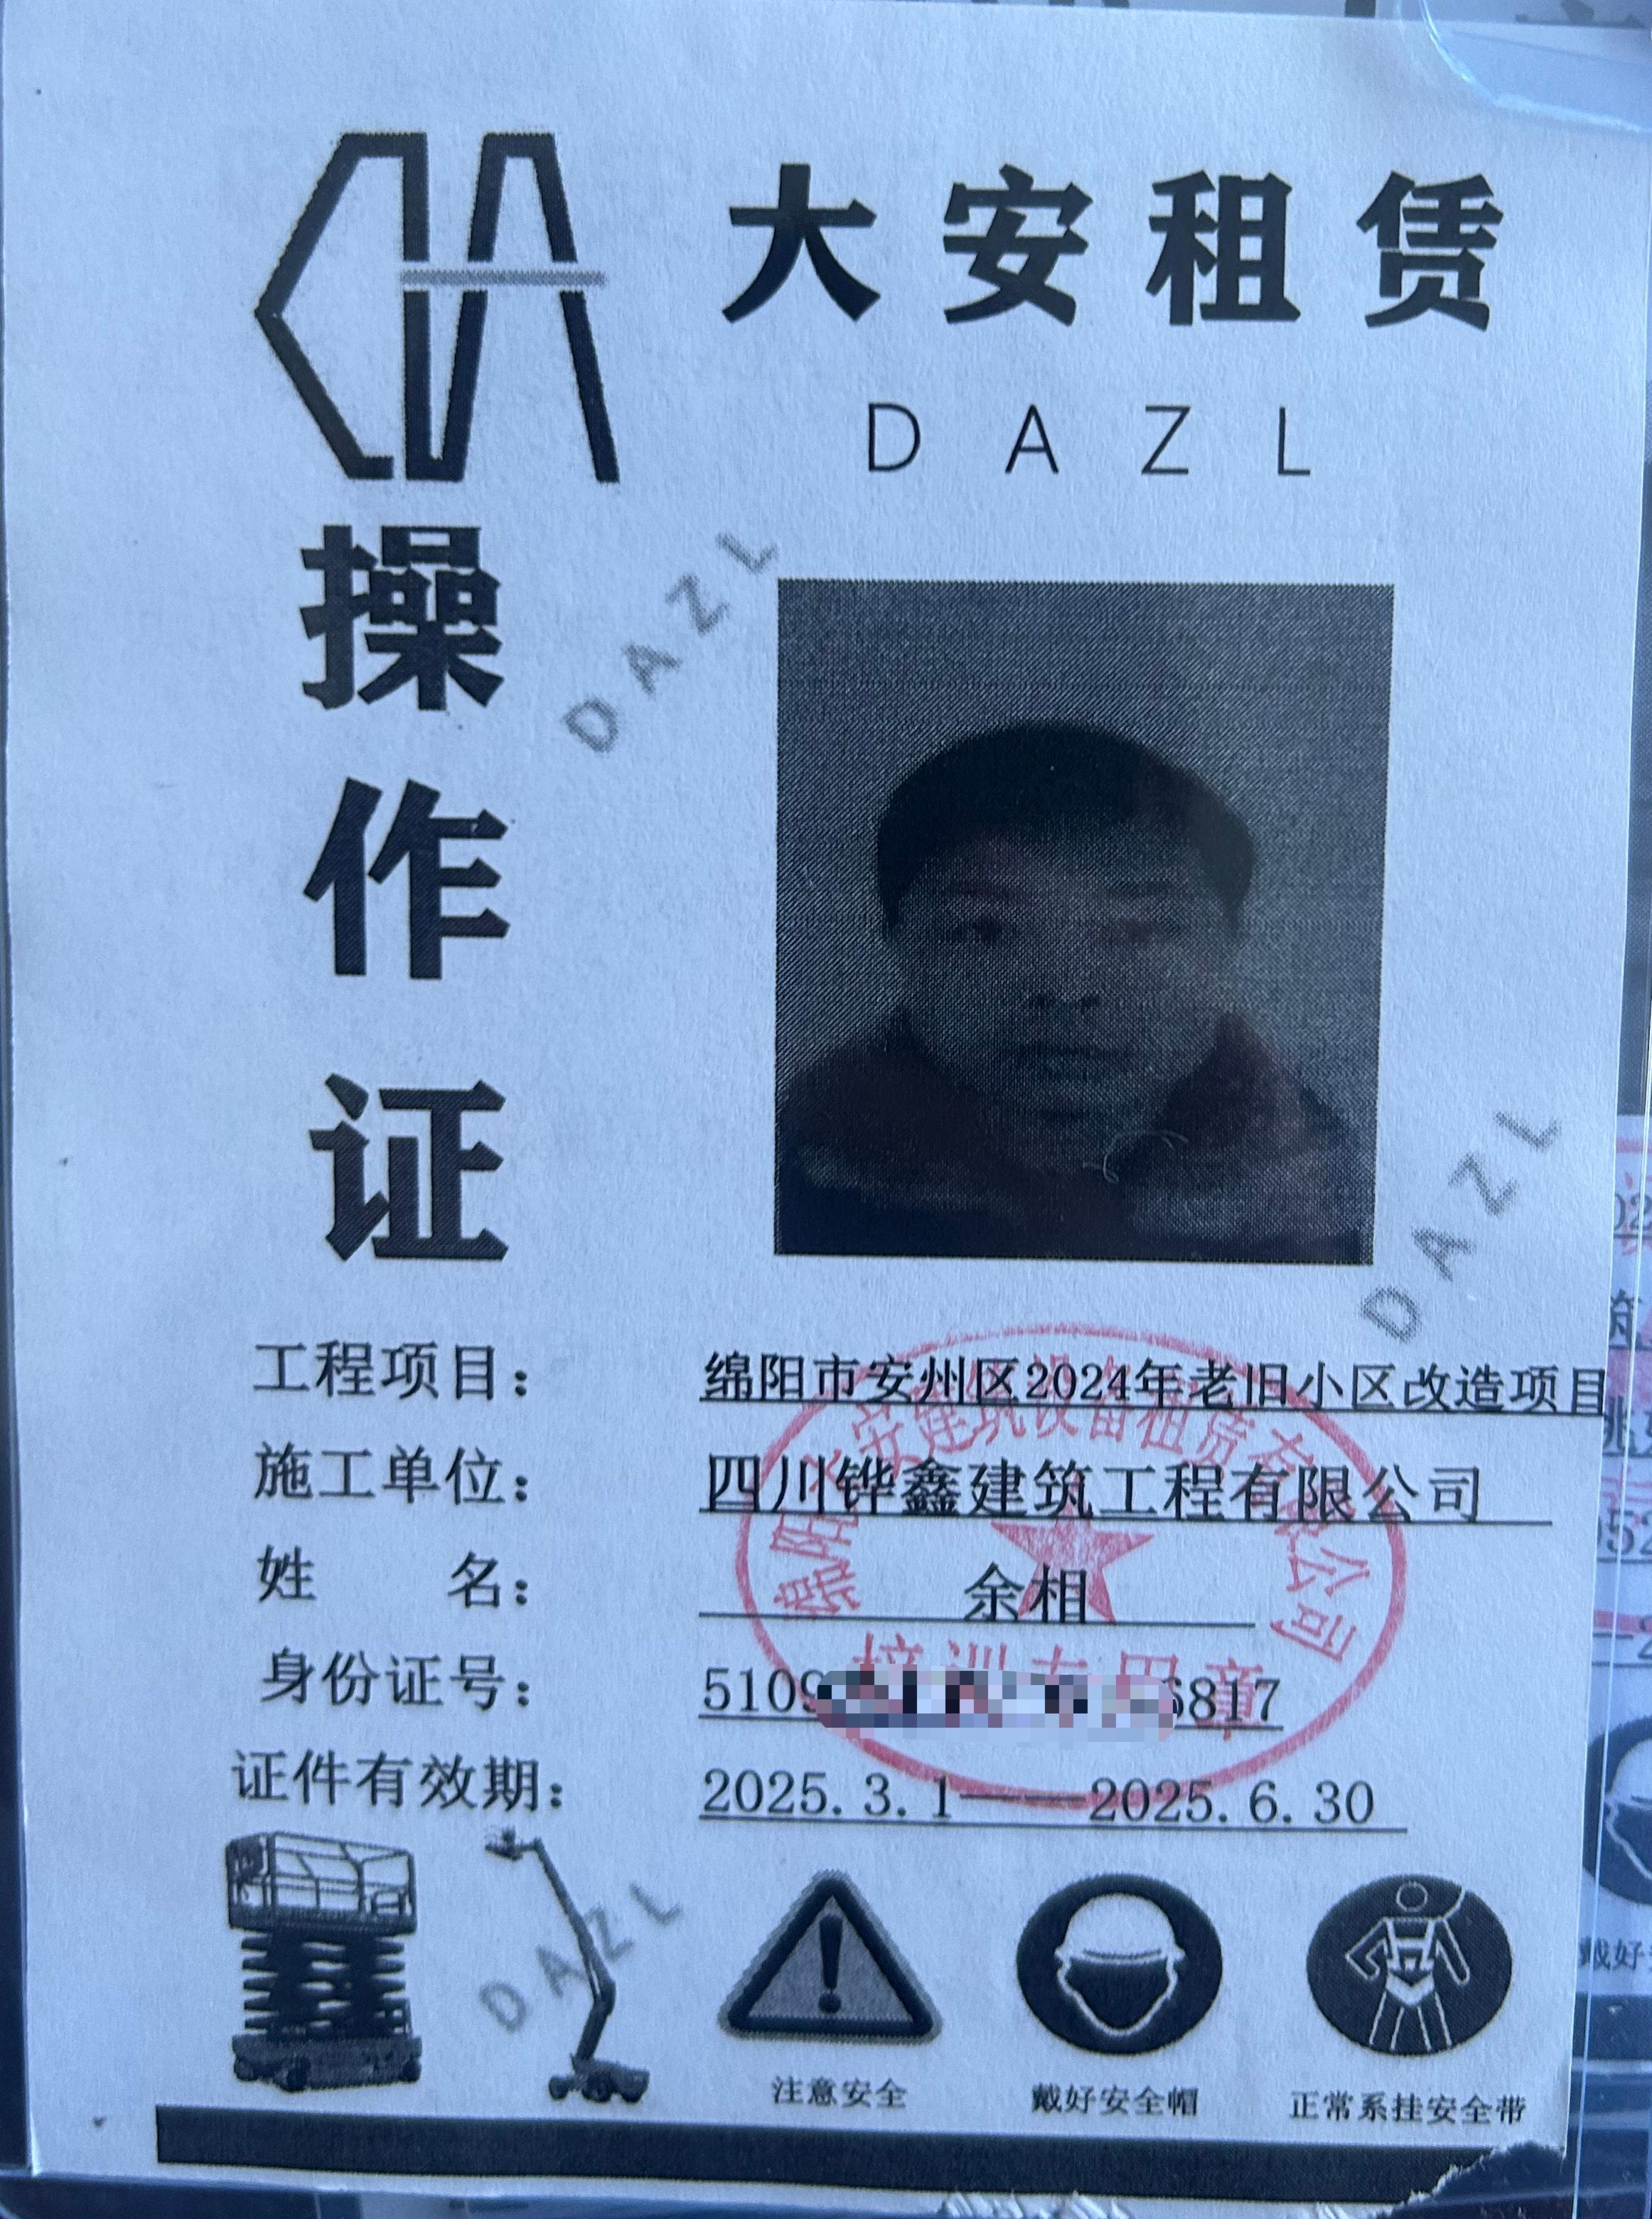 大安租赁
DAZL
操作证
DAZL
DAZL
工程项目：绵阳市安州区2024年老旧小区改造项目
施工单位：四川铧鑫建筑工程有限公司
姓 名：余相
身份证号：5109 6817
证件有效期：2025.3.1——2025.6.30
绵阳大安建筑设备租赁有限公司
培训专用章
DAZL
注意安全
戴好安全帽
正常系挂安全带
戴好